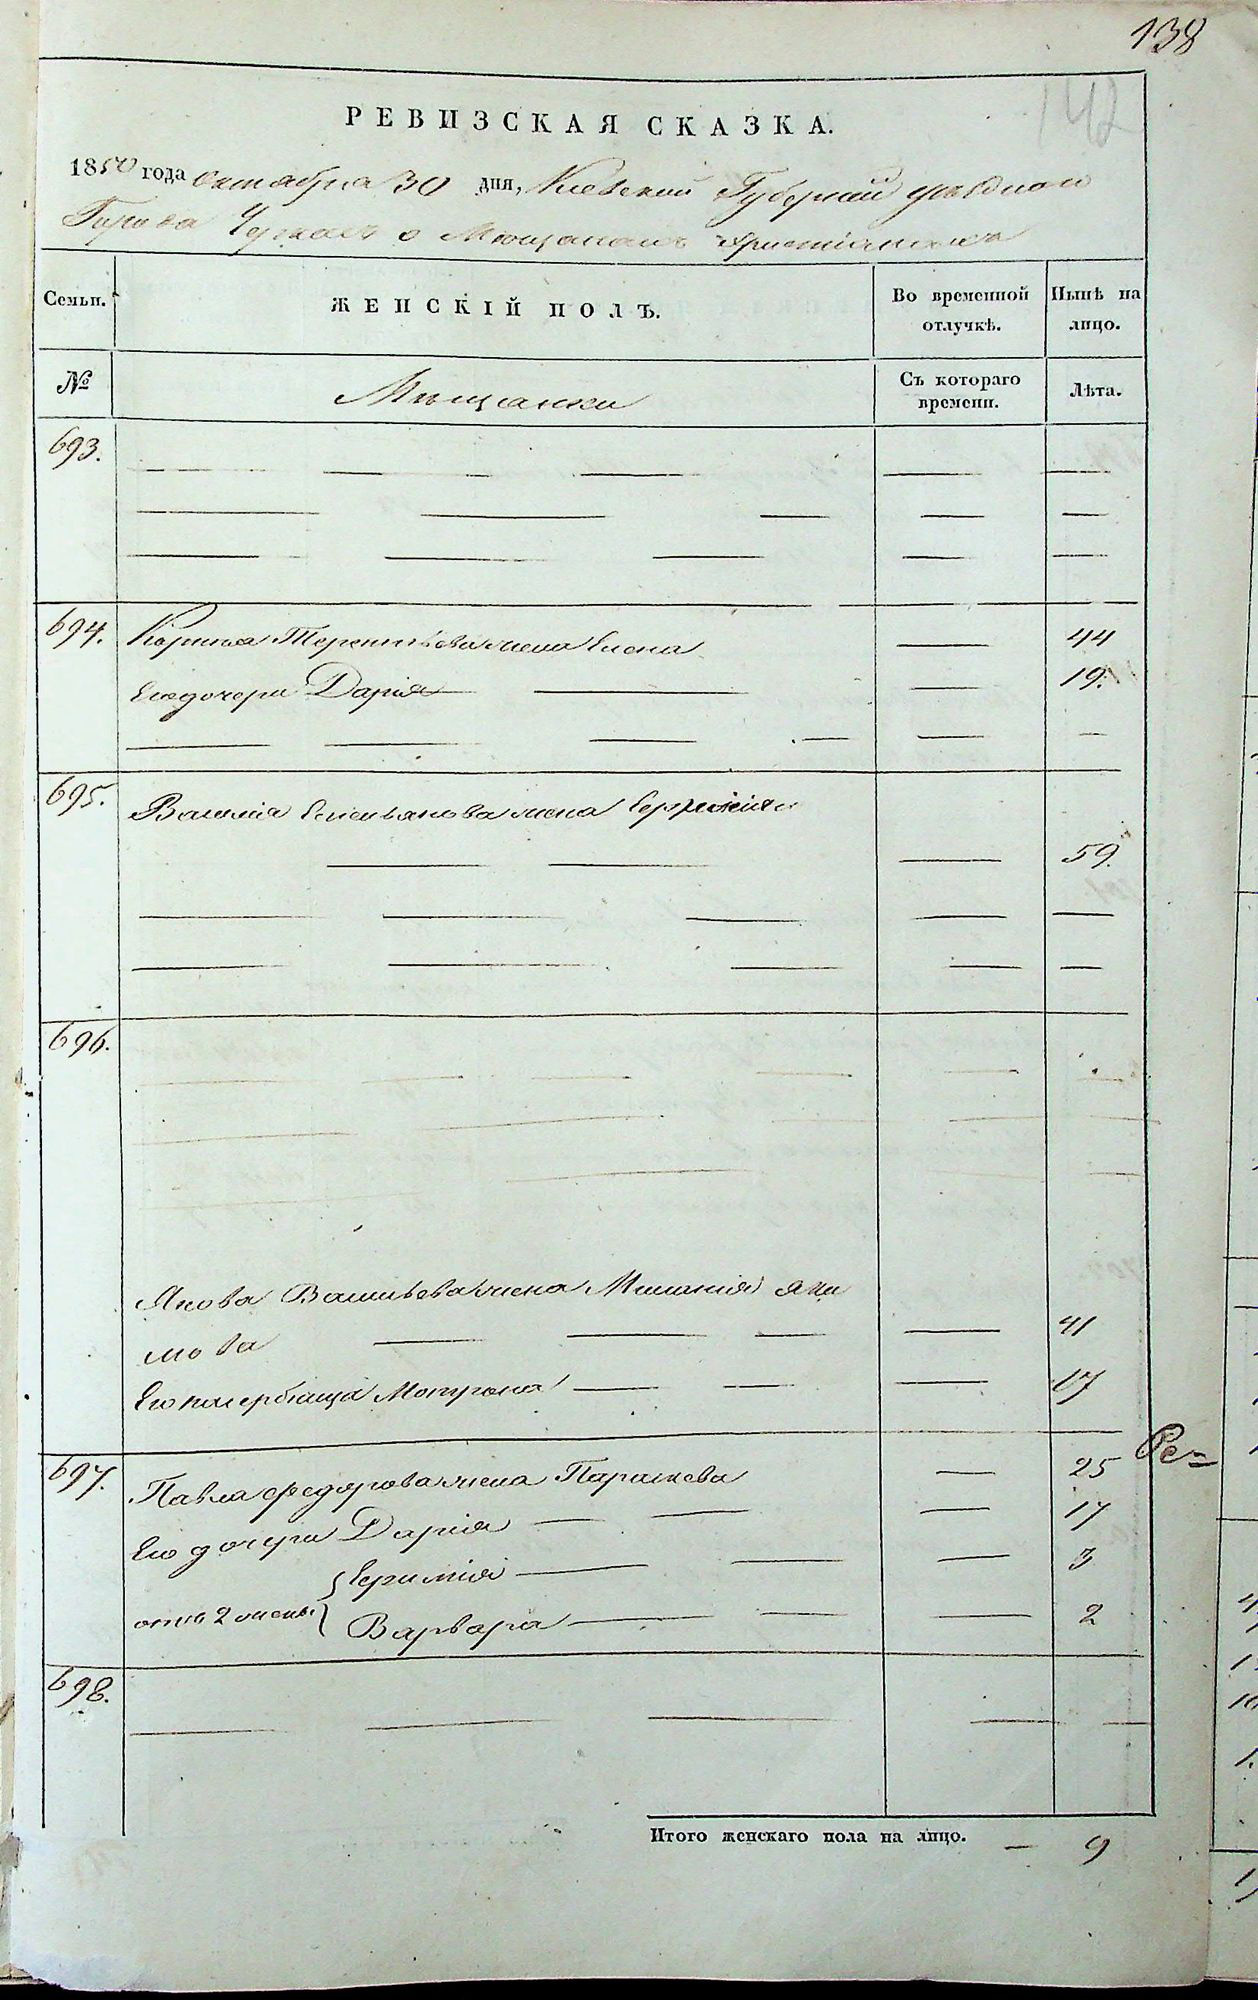 138
142
РЕВИЗСКАЯ СКАЗКА.
1850 года октября 30 дня, Киевской Губернии уездного
Города Черкас о Мещанахъ христианахъ
Семьи. ЖЕНСКІЙ ПОЛЪ. Во временной отлучкѣ. Нынѣ на лицо.
№ Мещанки Съ котораго времени. Лѣта.
693.
694. Корнила Терентьева жена Елена 44
Его дочери Дарія 19.
695. Василія Емельянова жена Евфимія
59.
696.
Якова Васильева жена Меланія Яки
мова 41
Его Мотрона 17
697. Павла Федорова жена Параскева 25
Его дочери Дарія 17
Евфимія 3
отъ 2 жены Варвара 2
698.
Ре=
Итого женскаго пола на лицо. — 9